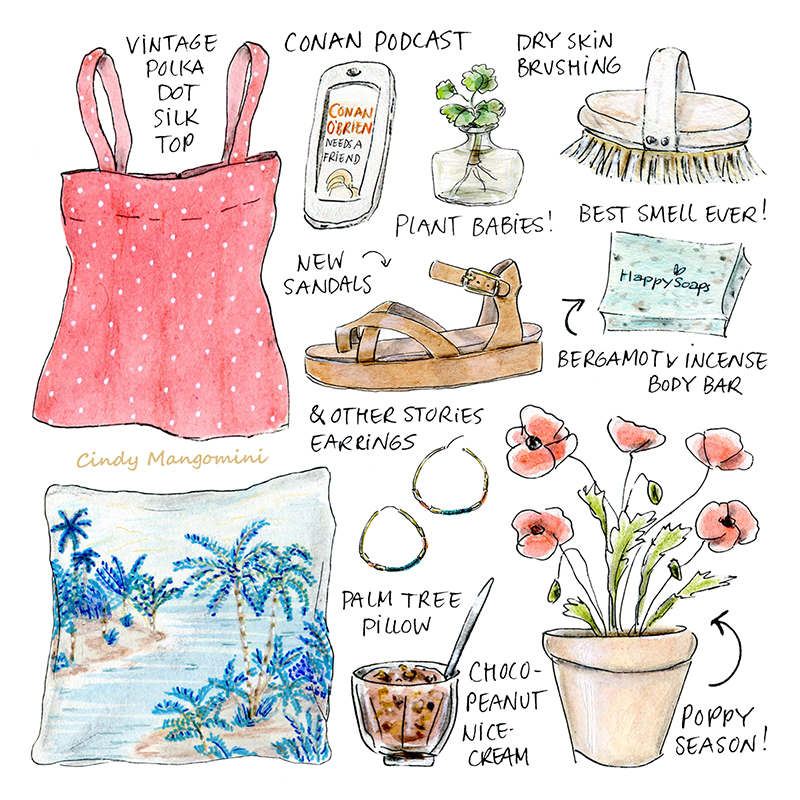 VINTAGE
POLKA
DOT
SILK
TOP
CONAN PODCAST
CONAN
O'BRIEN
NEEDS A
FRIEND
DRY SKIN
BRUSHING
PLANT BABIES!
BEST SMELL EVER!
HappySoaps
BERGAMOT & INCENSE
BODY BAR
NEW
SANDALS
& OTHER STORIES
EARRINGS
Cindy Mangomini
PALM TREE
PILLOW
CHOCO-
PEANUT
NICE-
CREAM
POPPY
SEASON!